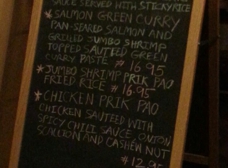 SAUCE SERVED WITH STICKY RICE
*SALMON GREEN CURRY
PAN-SEARED SALMON AND
GRILLED JUMBO SHRIMP
TOPPED SAUTEED GREEN
CURRY PASTE $16.95
*JUMBO SHRIMP PRIK PAO
FRIED RICE $16.95
*CHICKEN PRIK PAO
CHICKEN SAUTEED WITH
SPICY CHILI SAUCE, ONION
SCALLION AND CASHEW NUT
$12.95